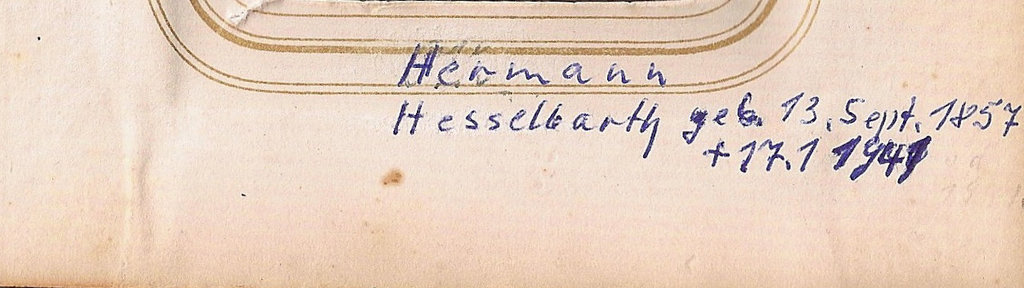 Hermann
Hesselbarth geb. 13. Sept. 1857
+ 17.1 1941